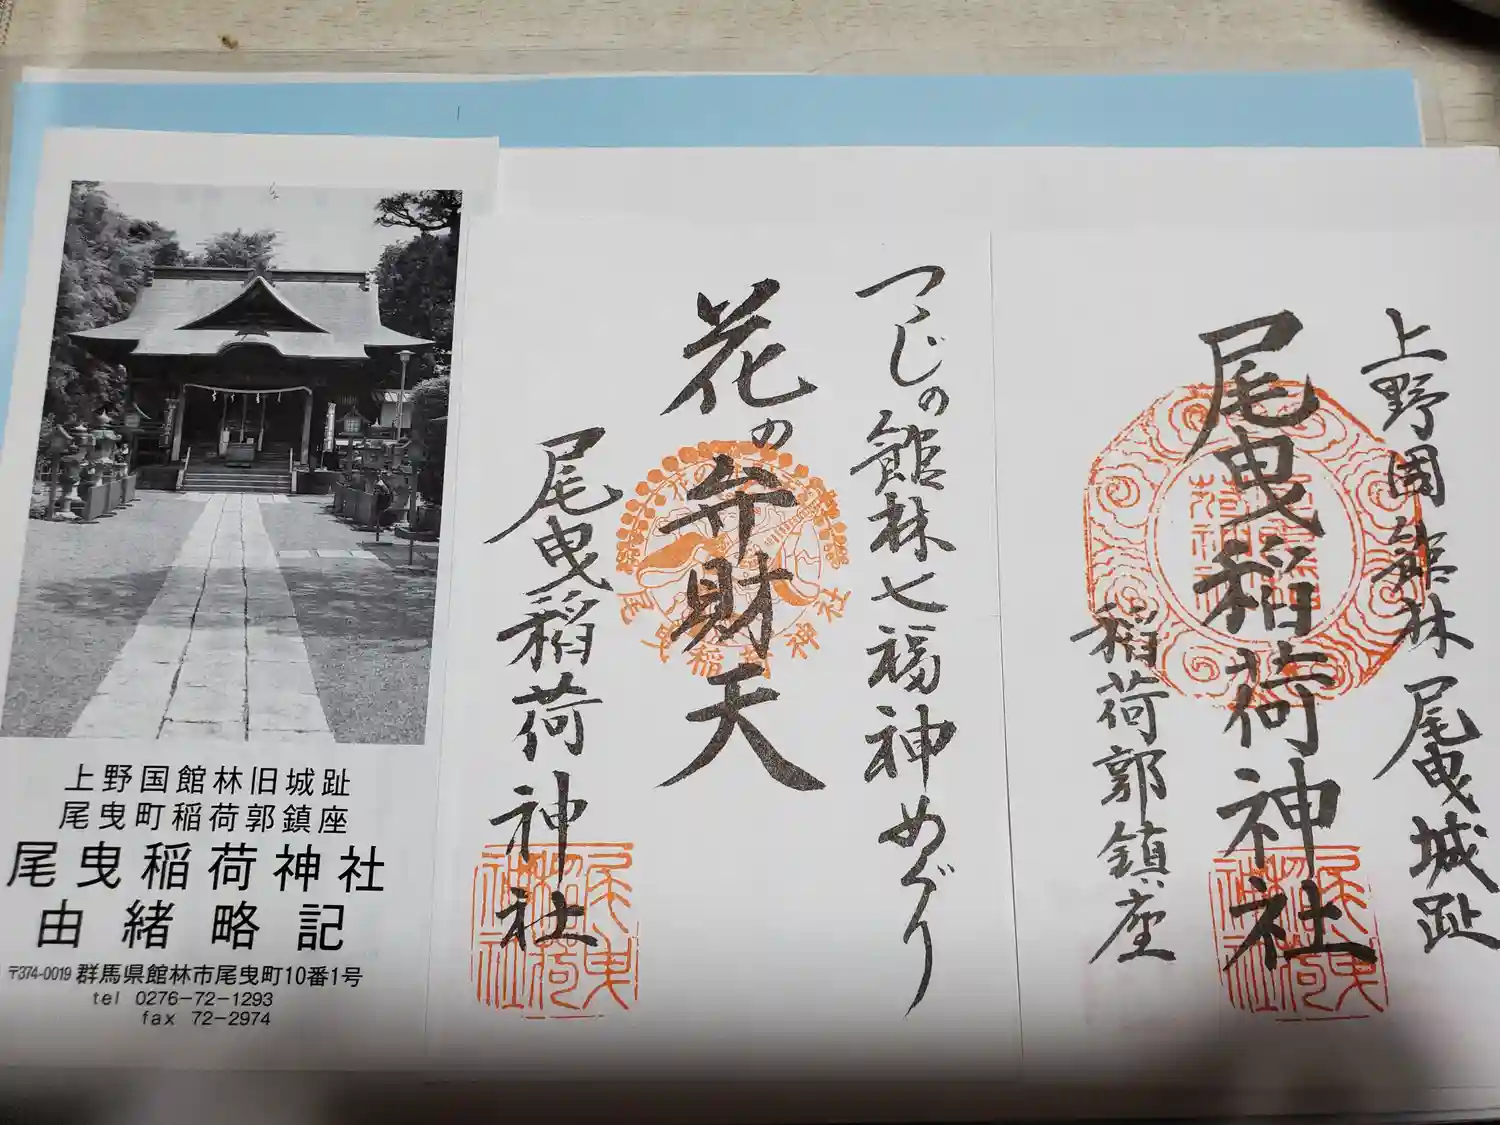 上野国館林旧城趾
尾曳町稲荷郭鎮座
尾曳稲荷神社
由緒略記
〒374-0019 群馬県館林市尾曳町10番1号
tel 0276-72-1293
fax 72-2974
上野国館林尾曳城趾
尾曳稲荷神社
稲荷郭鎮座
尾曳稲荷
神社
つゝじの館林七福神めぐり
花の弁財天
尾曳稲荷神社
尾曳稲荷神社
尾曳稲荷
神社